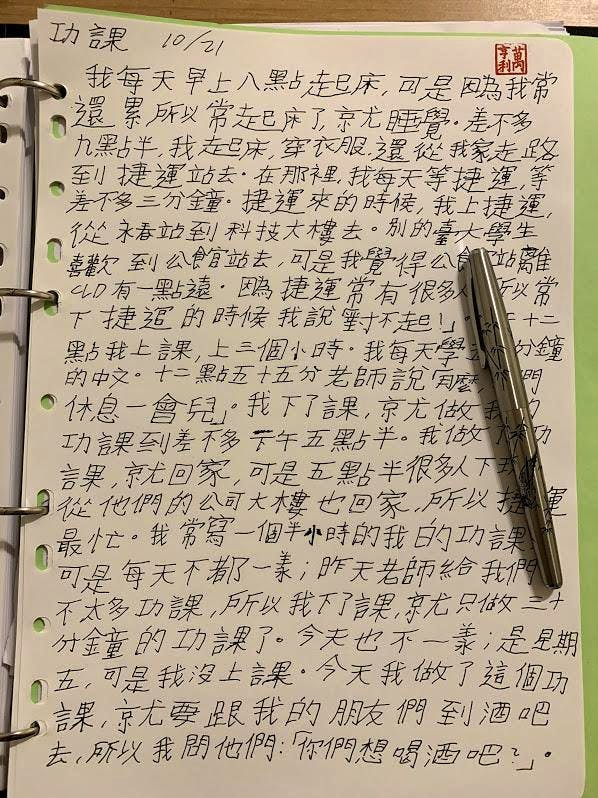 功課 10/21
萬亨利
我每天早上八點起床,可是因為我常
還累所以常起床了就睡覺。差不多
九點半,我起床,穿衣服,還從我家走路
到捷運站去。在那裡,我每天等捷運,等
差不多三分鐘。捷運來的時候,我上捷運,
從永春站到科技大樓去。別的臺大學生
喜歡到公館站去,可是我覺得公館站離
CLD有一點遠。因為捷運常有很多人,所以常
下捷運的時候我說「對不起!」。十二
點我上課,上三個小時。我每天學五分鐘
的中文。十二點五十五分老師說「 們
休息一會兒」。我下了課,就做我的
功課到差不多下午五點半。我做了功
課,就回家,可是五點半很多人下
從他們的公司大樓也回家,所以捷運
最忙。我常寫一個半小時的我的功課,
可是每天不都一樣;昨天老師給我們
不太多功課,所以我下了課,就只做三十
分鐘的功課了。今天也不一樣;是星期
五,可是我沒上課。今天我做了這個功
課,就要跟我的朋友們到酒吧
去,所以我問他們:「你們想喝酒吧?」。